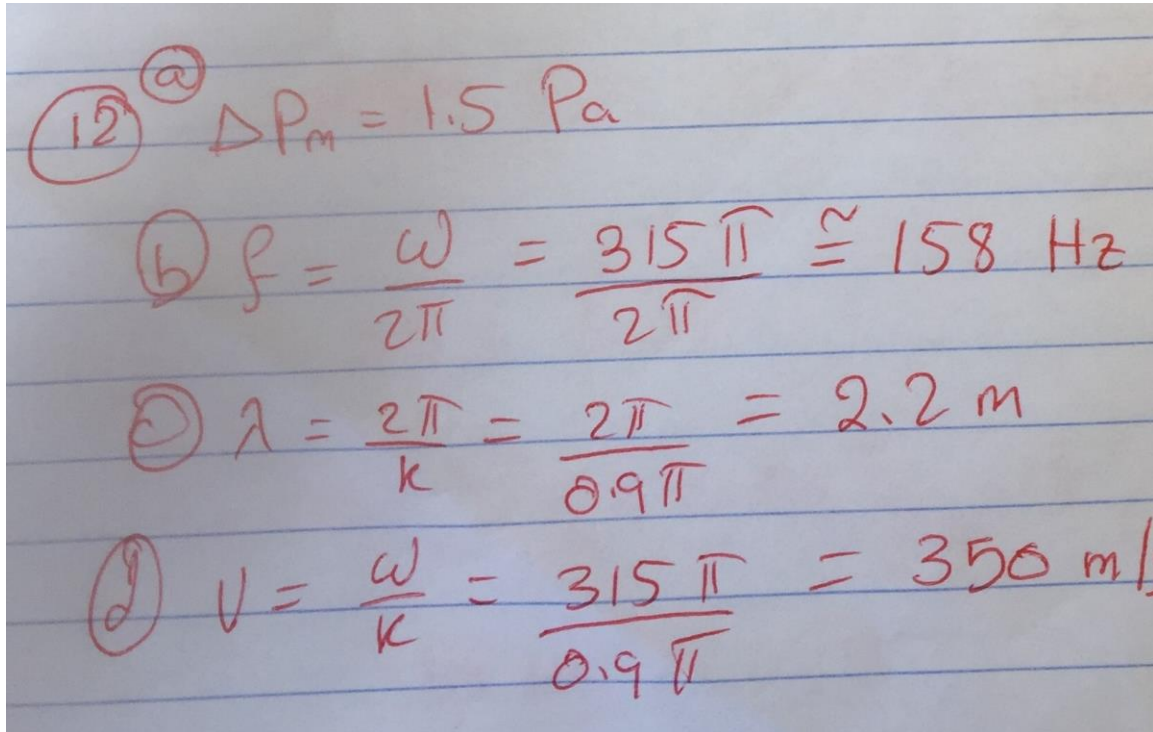 12 a ΔPm = 1.5 Pa
b f = ω/2π = 315π/2π ≅ 158 Hz
c λ = 2π/k = 2π/0.9π = 2.2 m
d v = ω/k = 315π/0.9π = 350 m/